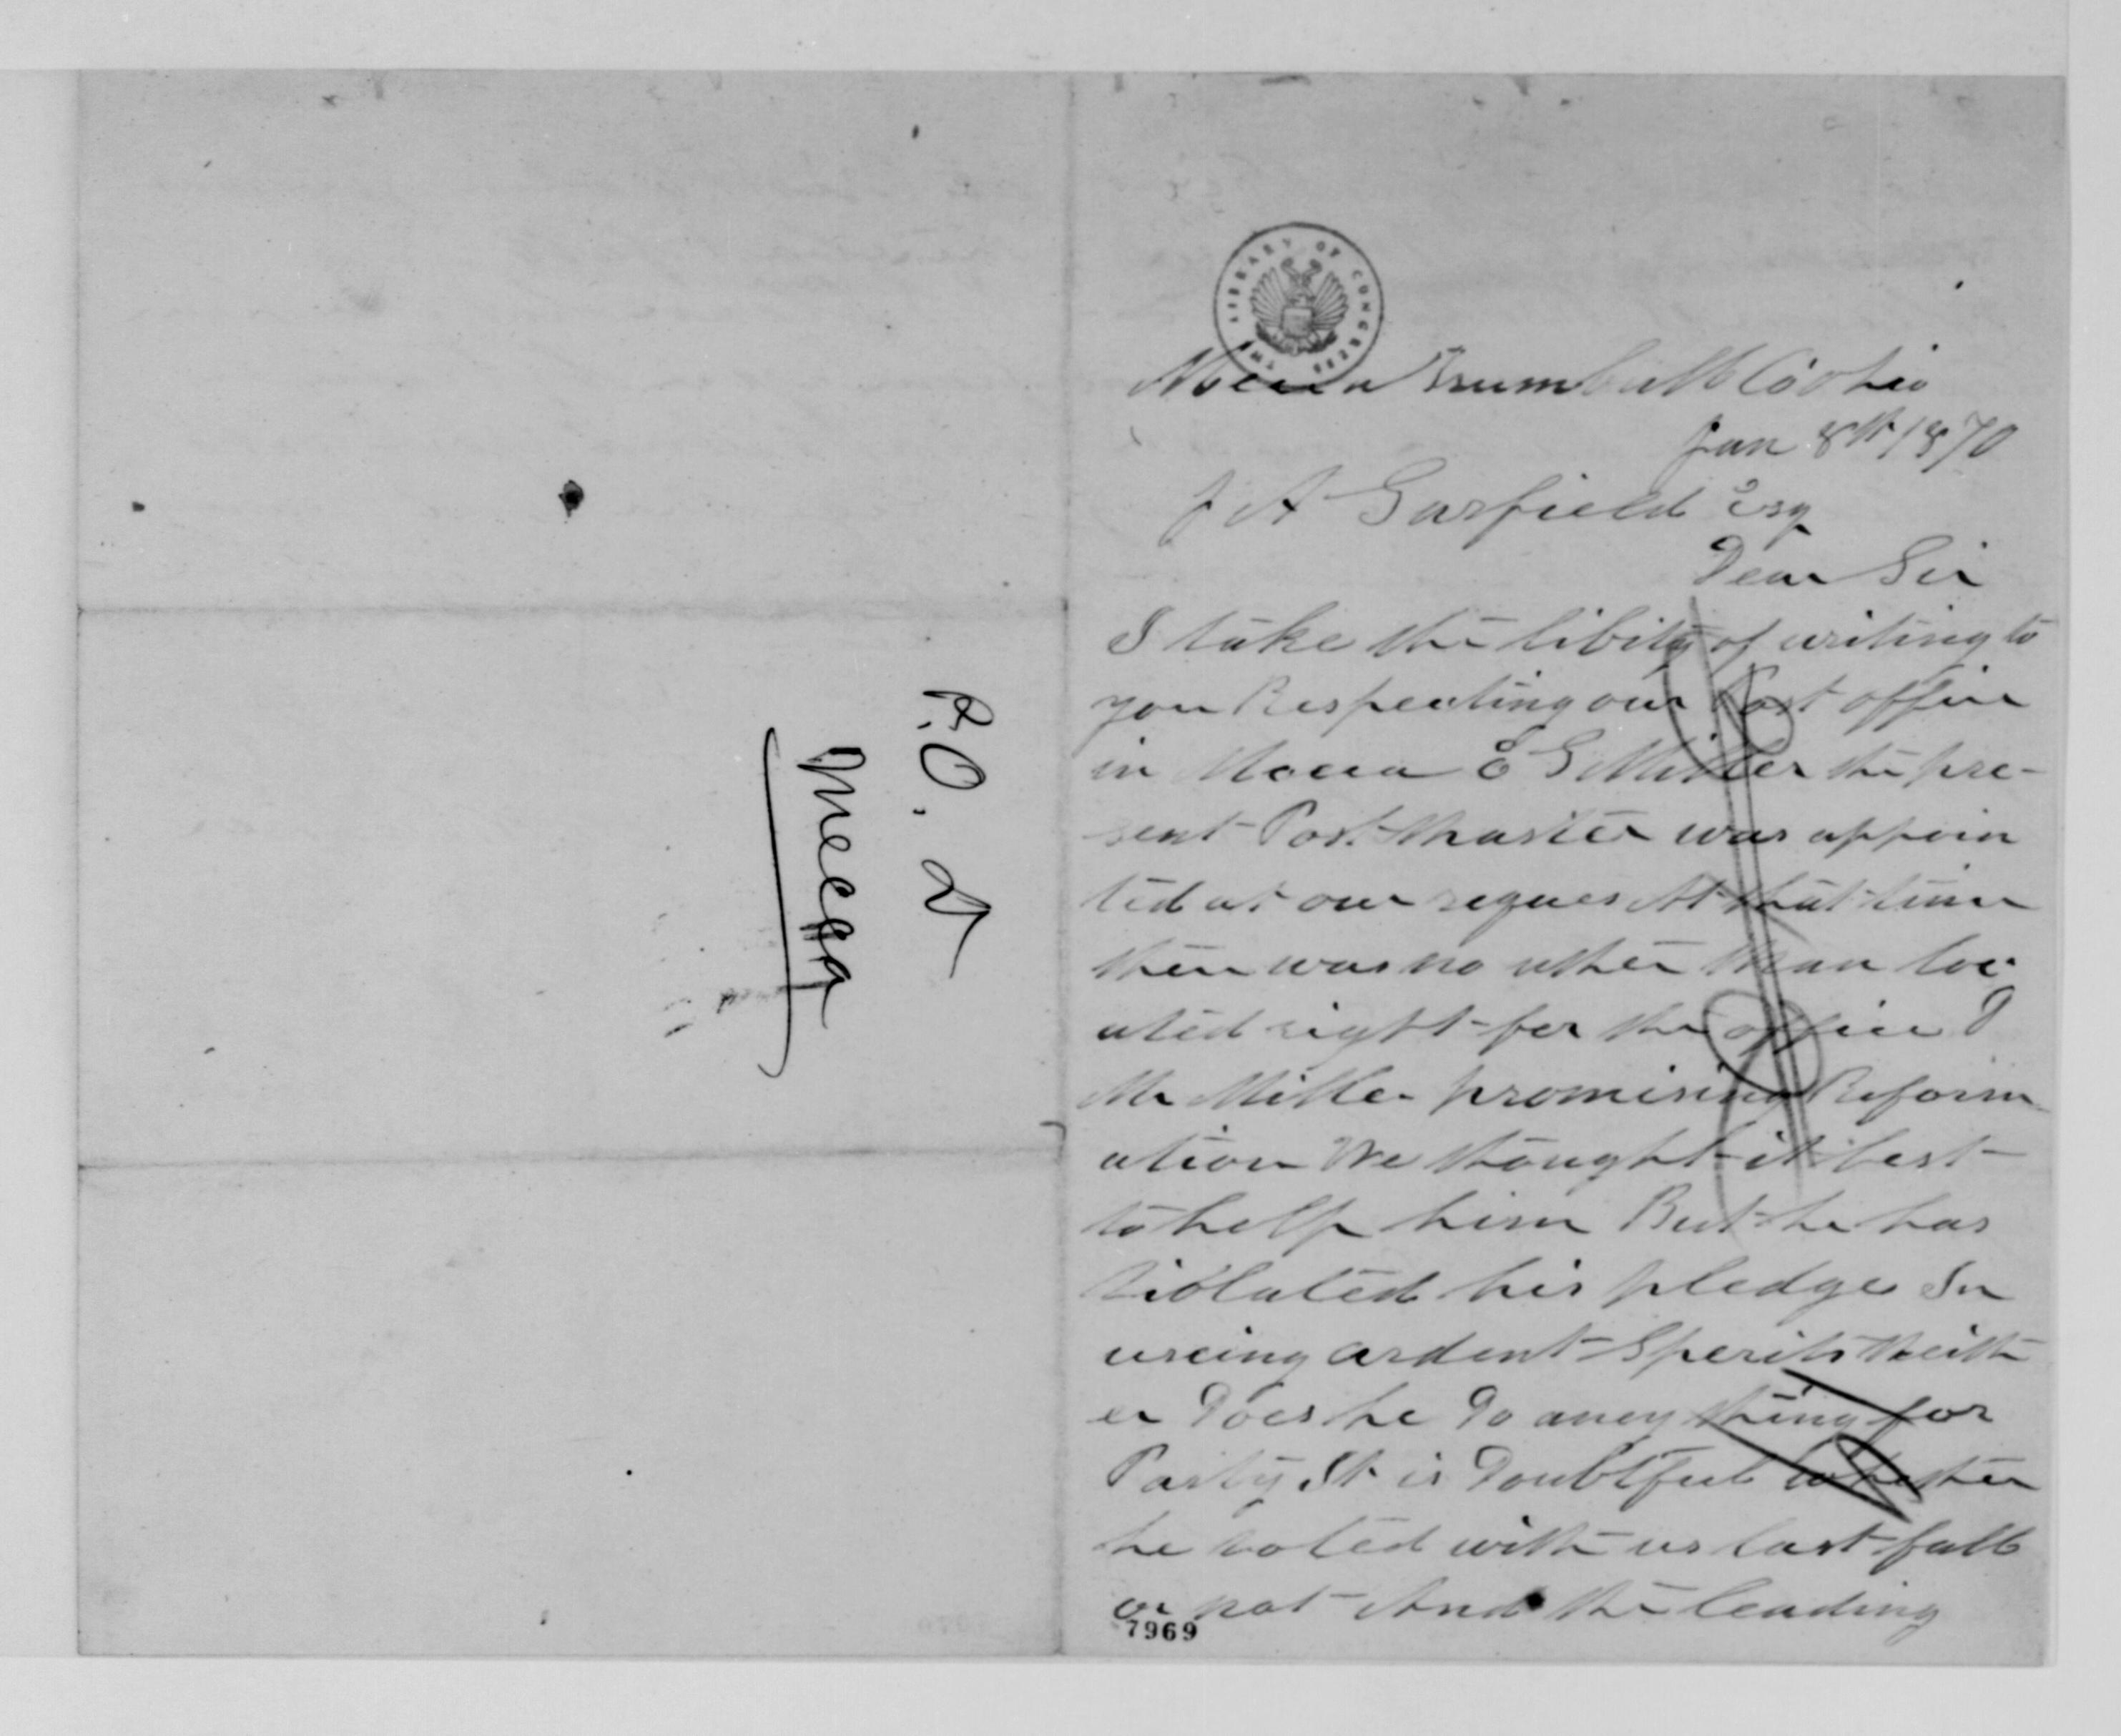 P.O. D
Mecca
THE LIBRARY OF CONGRESS
Mecca Trumbull Co Ohio
Jan 8th 1870
J A Garfield Esq
Dear Sir
I take the libity of writing to
you Respecting our Post office
in Mecca E G Miller the pre-
sent Post Master was appoin
ted at our request At that time
there was no other man loc
ated right for the office &
Mr Miller promising Reform
ation We thought it best
to help him But he has
violated his pledge In
useing ardent Sperits Neith
er Does he Do aney thing for
Party It is Doubtful whether
he voted with us last fall
or not And the leading
7969